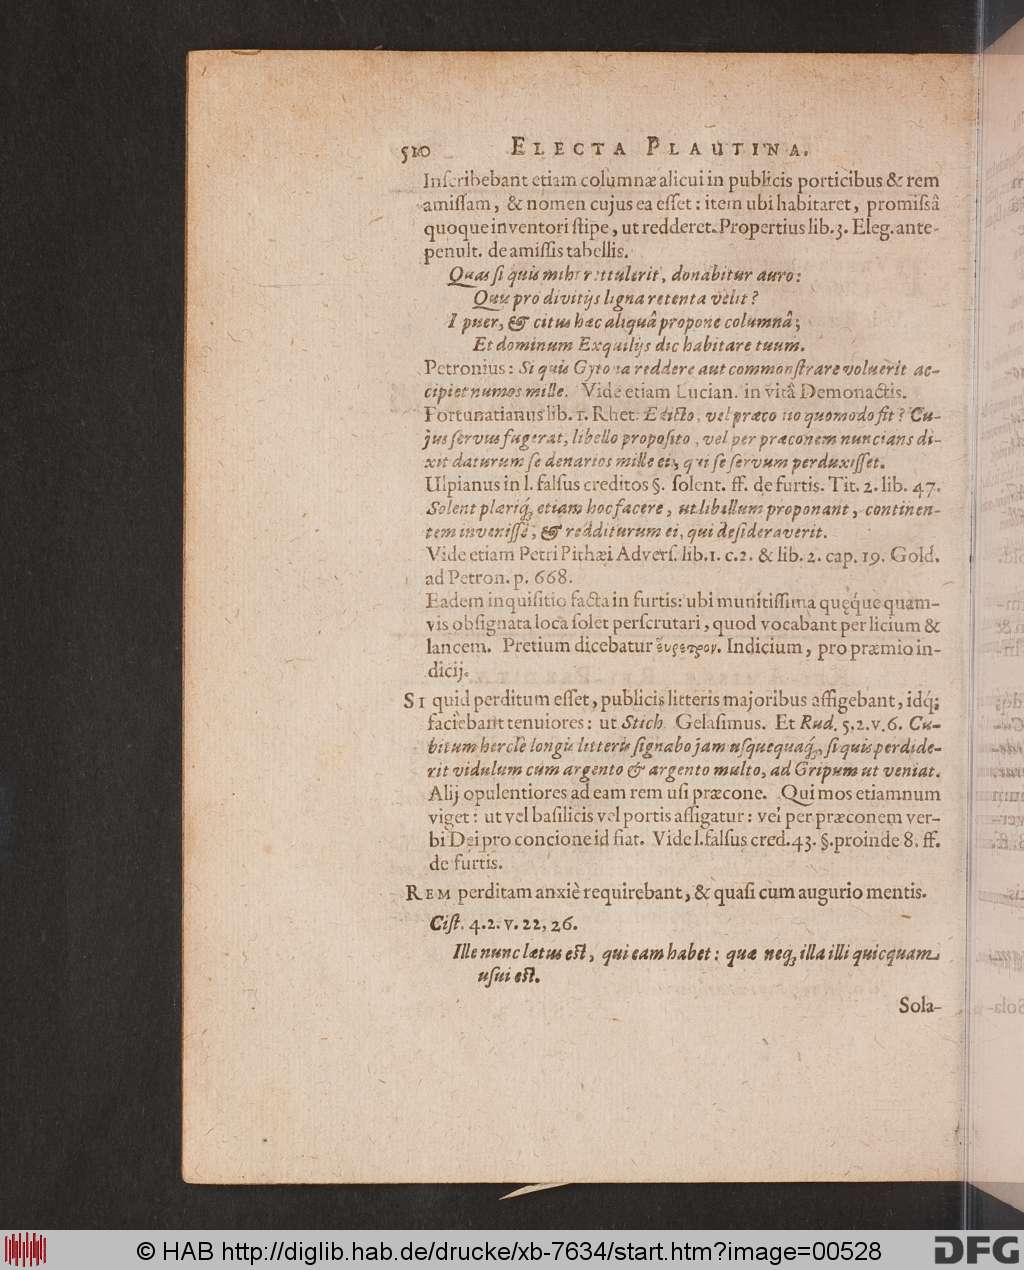 510 ELECTA PLAUTINA.
Inscribebant etiam columnæ alicui in publicis porticibus & rem
amissam, & nomen cujus ea esset: item ubi habitaret, promissâ
quoque inventori stipe, ut redderet. Propertius lib. 3. Eleg. ante-
penult. de amissis tabellis.
Quas si quis mihi rettulerit, donabitur auro:
Quis pro divitijs ligna retenta velit?
I puer, & citus hæc aliquâ propone columnâ;
Et dominum Exquilijs dic habitare tuum.
Petronius: Si quis Gytona reddere aut commonstrare voluerit ac-
cipiet numos mille. Vide etiam Lucian. in vitâ Demonactis.
Fortunatianus lib. 1. Rhet. Edicto, vel præco no quomodo fit? Cu-
jus servus fugerat, libello proposito, vel per præconem nuncians di-
xit daturum se denarios mille ei, qui se servum perduxisset.
Ulpianus in l. falsus creditos §. solent. ff. de furtis. Tit. 2. lib. 47.
Solent plæriq; etiam hoc facere, ut libellum proponant, continen-
tem invenisse, & redditurum ei, qui desideraverit.
Vide etiam Petri Pithæi Advers. lib. 1. c. 2. & lib. 2. cap. 19. Gold.
ad Petron. p. 668.
Eadem inquisitio facta in furtis: ubi munitissima quęque quam-
vis obsignata loca solet perscrutari, quod vocabant per licium &
lancem. Pretium dicebatur εὕρετρον. Indicium, pro præmio in-
dicij.
SI quid perditum esset, publicis litteris majoribus affigebant, idq;
faciebant tenuiores: ut Stich. Gelasimus. Et Rud. 5. 2. v. 6. Cu-
bitum hercle longis litteris signabo jam usquequaq;, si quis perdide-
rit vidulum cum argento & argento multo, ad Gripum ut veniat.
Alij opulentiores ad eam rem usi præcone. Qui mos etiamnum
viget: ut vel basilicis vel portis affigatur: vel per præconem ver-
bi Dei pro concione id fiat. Vide l. falsus cred. 43. §. proinde 8. ff.
de furtis.
REM perditam anxiè requirebant, & quasi cum augurio mentis.
Cist. 4. 2. v. 22, 26.
Ille nunc lætus est, qui eam habet: quæ neq; illa illi quicquam
usui est.
Sola-
© HAB http://diglib.hab.de/drucke/xb-7634/start.htm?image=00528
DFG